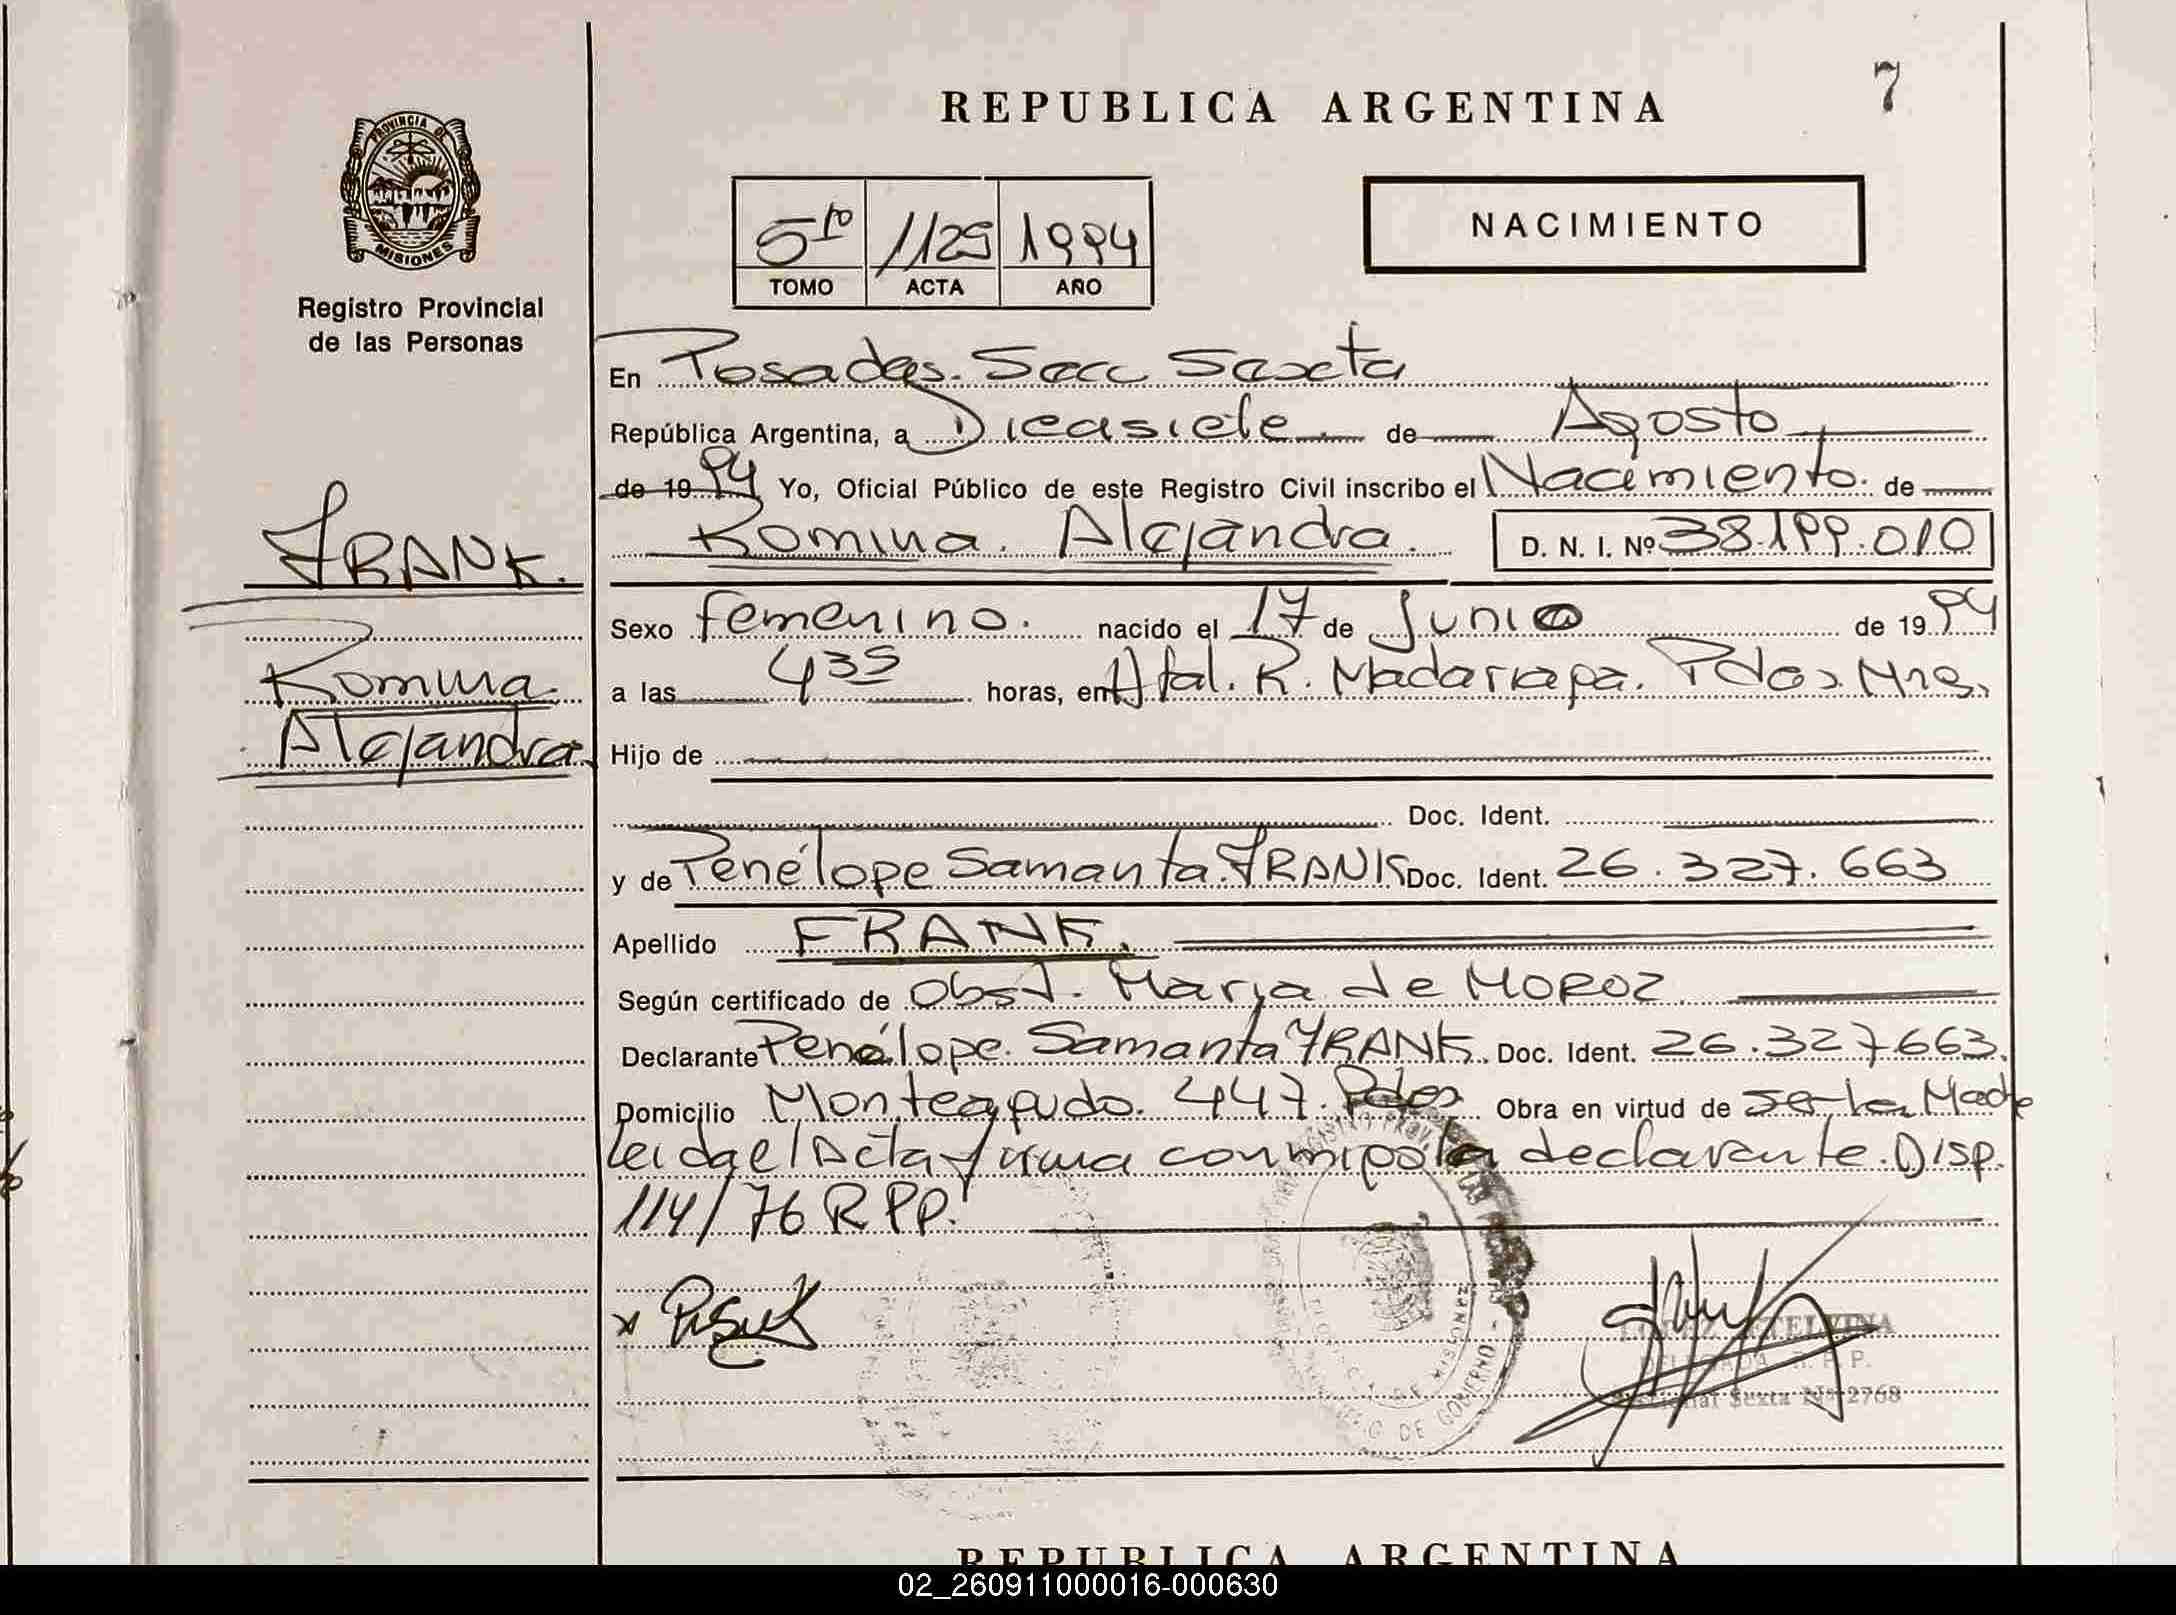 REPUBLICA ARGENTINA
7
PROVINCIA DE
MISIONES
Registro Provincial
de las Personas
5to 1125 1994
TOMO ACTA AÑO
NACIMIENTO
En Posadas. Secc Sexta
República Argentina, a Diecisiete de Agosto
de 1994 Yo, Oficial Público de este Registro Civil inscribo el Nacimiento. de
Romina. Alejandra. D. N. I. Nº 38.199.010
FRANK.
Romina
Alejandra.
Sexo femenino. nacido el 17 de Junio de 1994
a las 4 35 horas, en Htal. R. Madariaga. Pdas. Mnes.
Hijo de
Doc. Ident.
y de Penélope Samanta. FRANK Doc. Ident. 26.327.663
Apellido FRANK.
Según certificado de Obst. Maria de MOROZ
Declarante Penélope. Samanta FRANK. Doc. Ident. 26.327.663.
Domicilio Monteagudo. 447. Pdas Obra en virtud de ser la Madre
Leida el Acta firma conmigo la declarante. Disp.
114/76 R.P.P.
DELEGADA R. P. P.
Seccional Sexta Nº 2768
REPUBLICA ARGENTINA
02_260911000016-000630